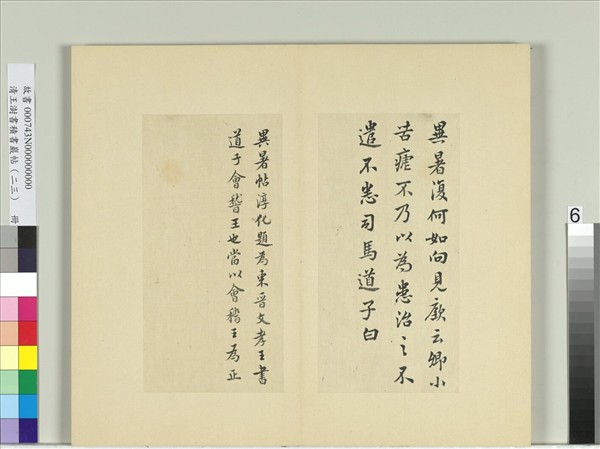 異暑復何如向見廞云卿小
苦瘧不乃以為患治之不
遣不悉司馬道子白
異暑帖淳化題為東晉文孝王書
道子會稽王也當以會稽王為正
故書 000743N000000000
清王澍書積書巖帖(二三) 冊
6